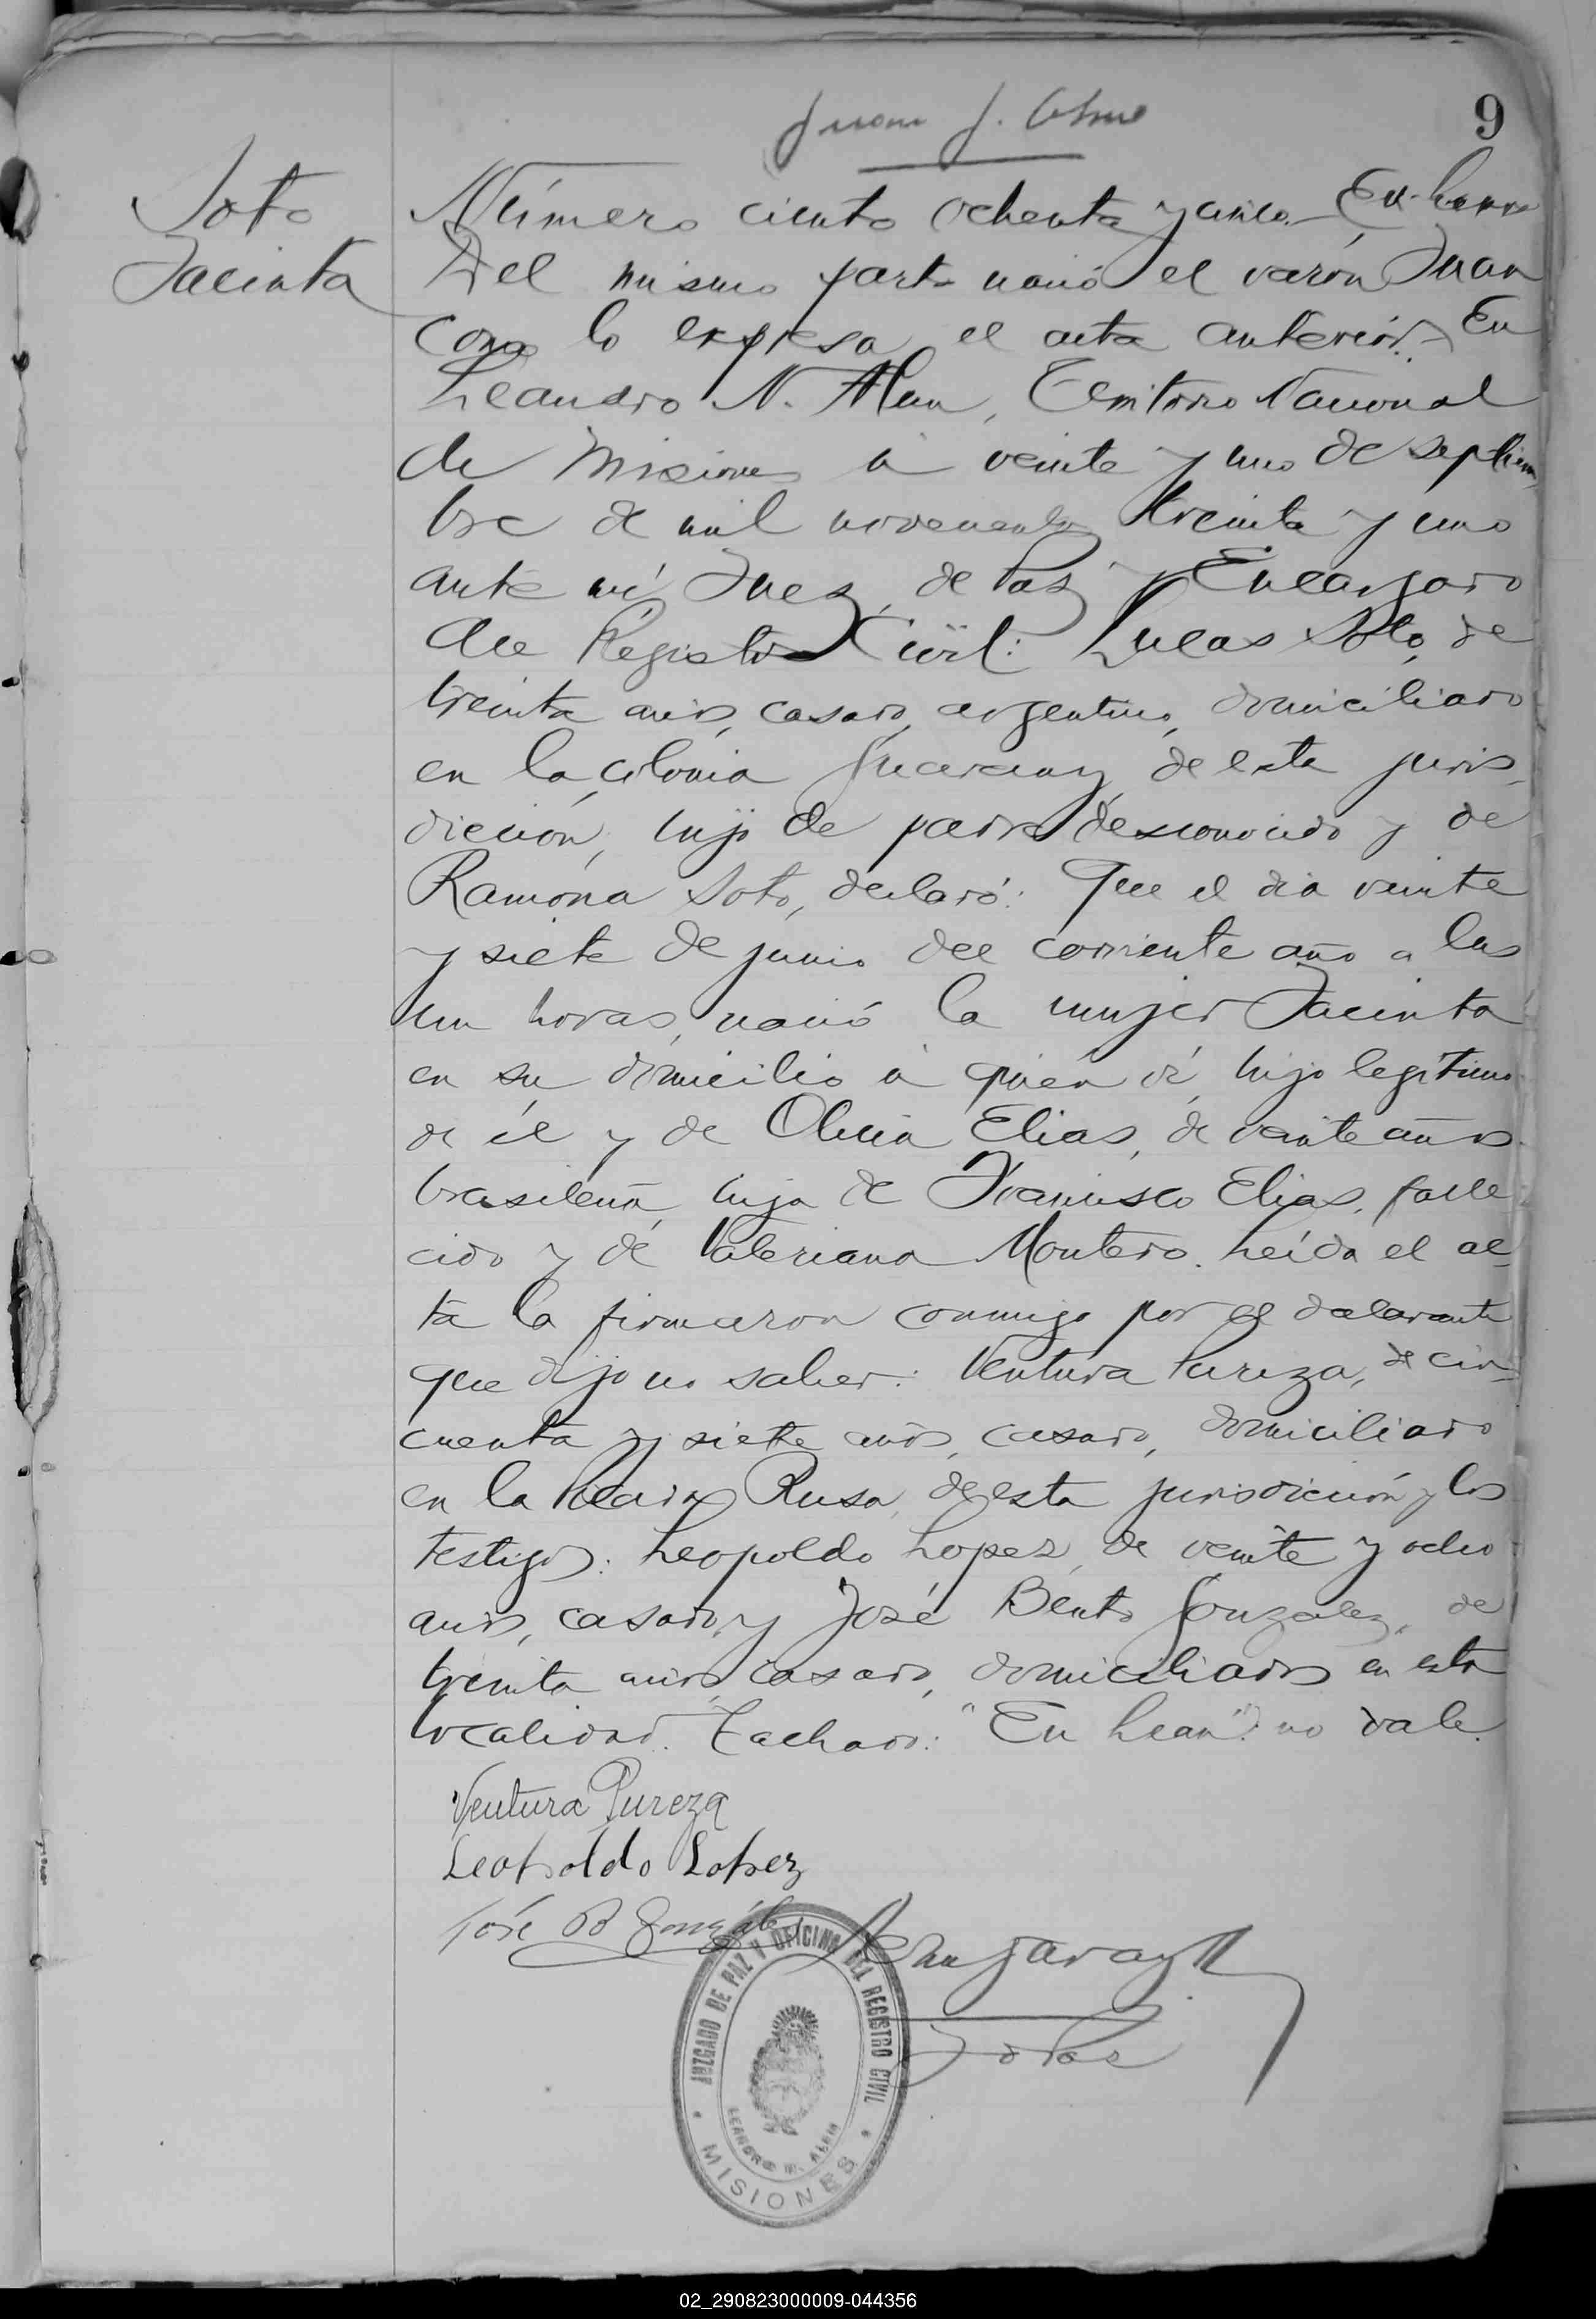 Juan J.
9
Soto
Jacinta
Número ciento ochenta y cinco. En Lean
Del mismo parto nació el varón Juan
como lo expresa el acta anterior. En
Leandro N. Alem, Territorio Nacional
de Misiones à veinte y uno de septiem
bre de mil novecientos treinta y uno
ante mí Juez de Paz y Encargado
del Registro Civil: Lucas Soto, de
treinta años, casado, argentino, domiciliado
en la colonia Guarany, de esta juris
dicción, hijo de padre desconocido y de
Ramona Soto, declaró: Que el dia veinte
y siete de junio del corriente año a las
un horas, nació la mujer Jacinta
en su domicilio à quién ví, hijo legítimo
de él y de Elias, de veinte años
brasileña, hija de Francisco Elias, falle
cido y de Valeriana Montero. Leída el ac-
ta la firmaron conmigo por el declarante
que dijo no saber: Ventura Pureza, de cin-
cuenta y siete años, casado, domiciliado
en la Picada Rusa, de esta jurisdicción y los
testigos: Leopoldo Lopez, de veinte y ocho
años, casado, y José Bento Gonzalez, de
treinta años, casado, domiciliados en esta
localidad. Tachado: "En Lean": no vale.
Ventura Pureza
Leopoldo Lopez
José B González
J de Paz
JUZGADO DE PAZ Y OFICINA DEL REGISTRO CIVIL
LEANDRO N. ALEM
MISIONES
02_290823000009-044356